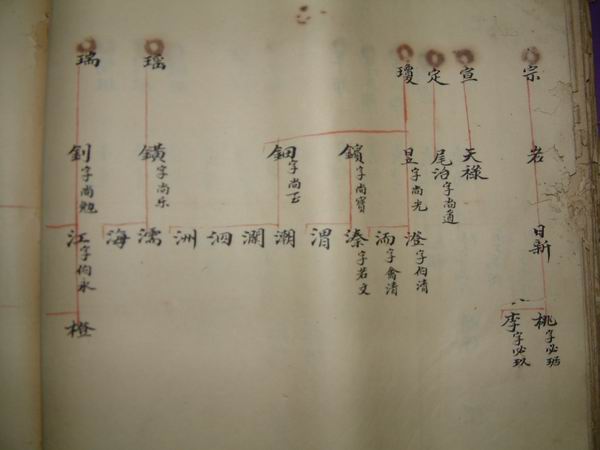 宗
若
日新
桃字必
李字必玖
宣
天祿
定
尾泊字尚通
瓊
昱字尚光
澄字伯清
洏字禽清
鑌字尚寶
溱字若文
渭
鈿字尚玉
潮
瀾
泗
洲
瑶
鐄字尚乐
濡
海
瑞
釗字尚勉
江字伯水
橙